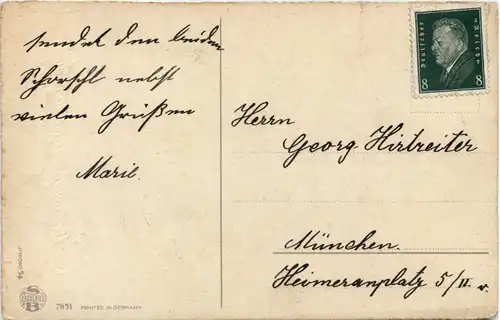 sendet den beiden
Schorschl nebst
vielen Grüßen
Marie.
Deutsches Reich
8 8
Herrn
Georg Hirtreiter
München.
Heimeranplatz 5/II r.
7851 PRINTED IN GERMANY